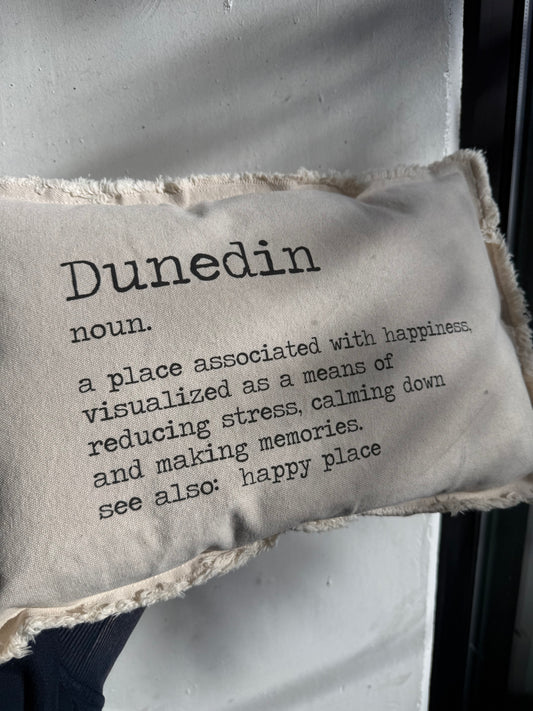 Dunedin
noun.
a place associated with happiness,
visualized as a means of
reducing stress, calming down
and making memories.
see also: happy place